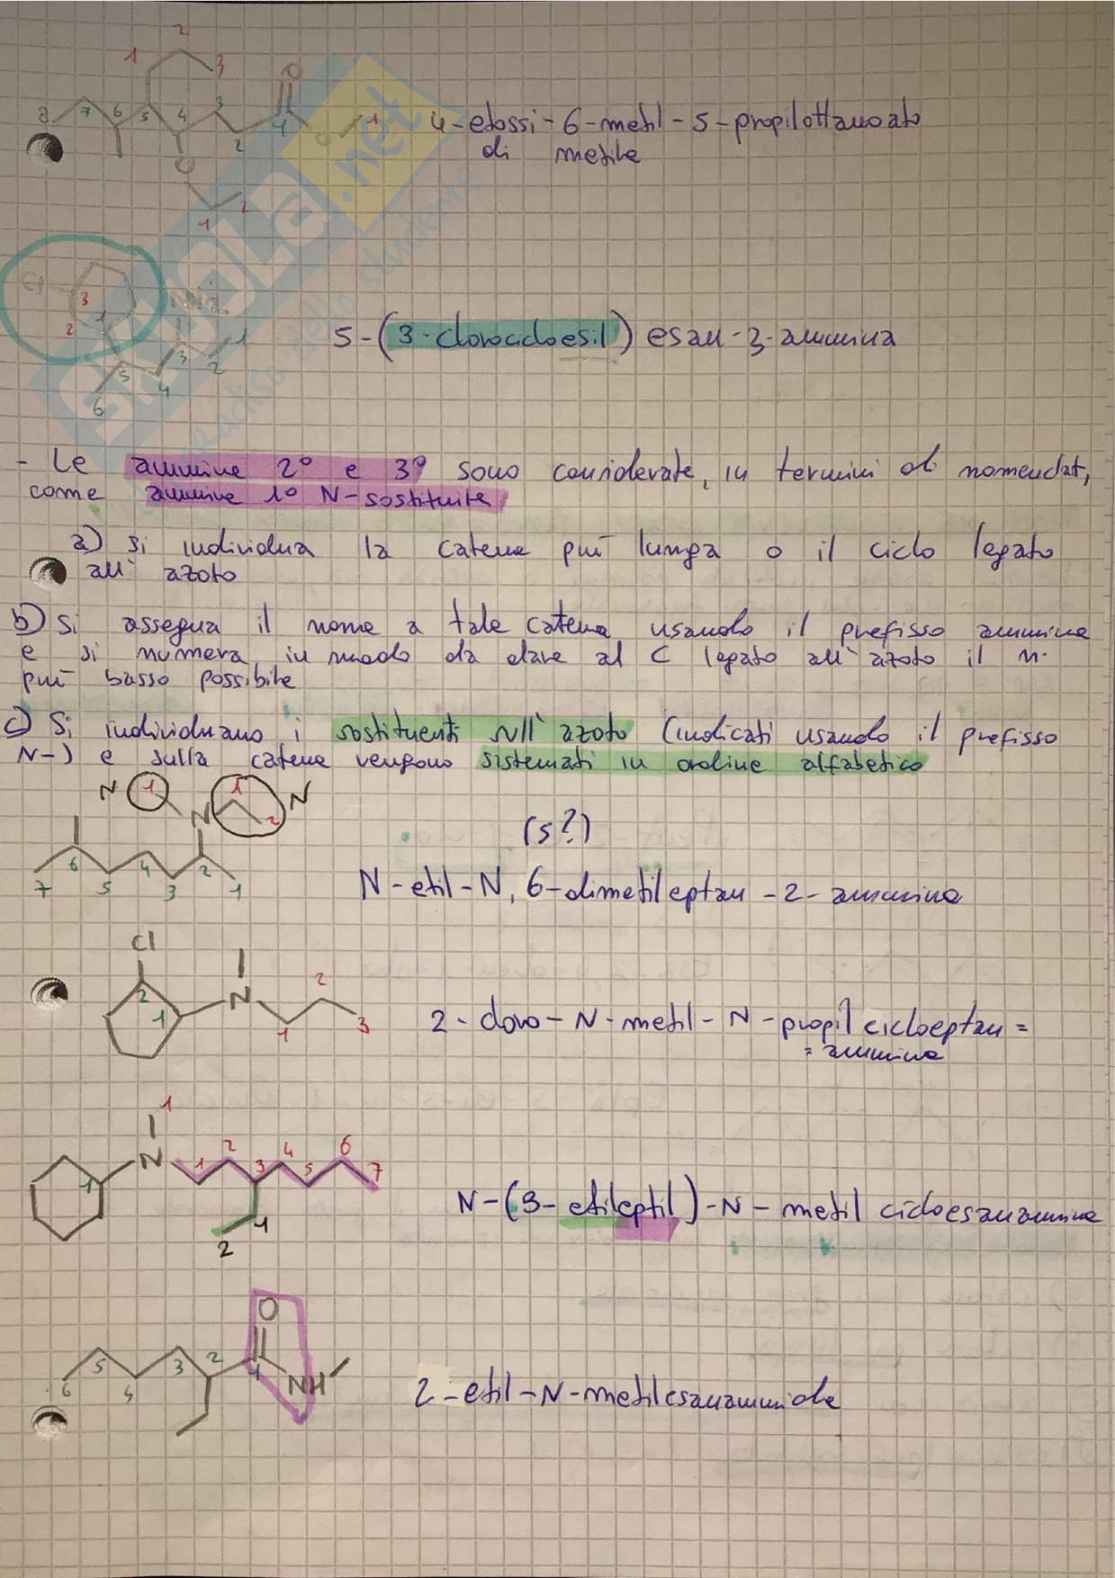 2
1
3
O
8 7 6 5 4 3 2 1 O 1
4-etossi-6-metil-5-propilottanoato
di metile
O
1 2
Cl
3
1
2
1
5 4 3 2
6
5-(3-clorocicloesil)esan-3-ammina
- Le ammine 2° e 3° sono considerate, in termini di nomenclat,
come ammine 1° N-sostituite
a) Si individua la catena più lunga o il ciclo legato
all'azoto
b) Si assegna il nome a tale catena usando il prefisso ammina
e si numera in modo da dare al C legato all'azoto il n.
più basso possibile
c) Si individuano i sostituenti sull'azoto (indicati usando il prefisso
N-) e sulla catena vengono sistemati in ordine alfabetico
N 1 N 1 2 N
(s?)
7 6 5 4 3 2 1
N-etil-N,6-dimetileptan-2-ammina
Cl
2 1 N 1 2 3
2-cloro-N-metil-N-propilcicloeptan=
=ammina
1
1 N 1 2 3 4 5 6 7
1
2
N-(3-etileptil)-N-metilcicloesanammina
O
6 5 4 3 2 1 NH
2-etil-N-metilesanammide
SKUOLA.net